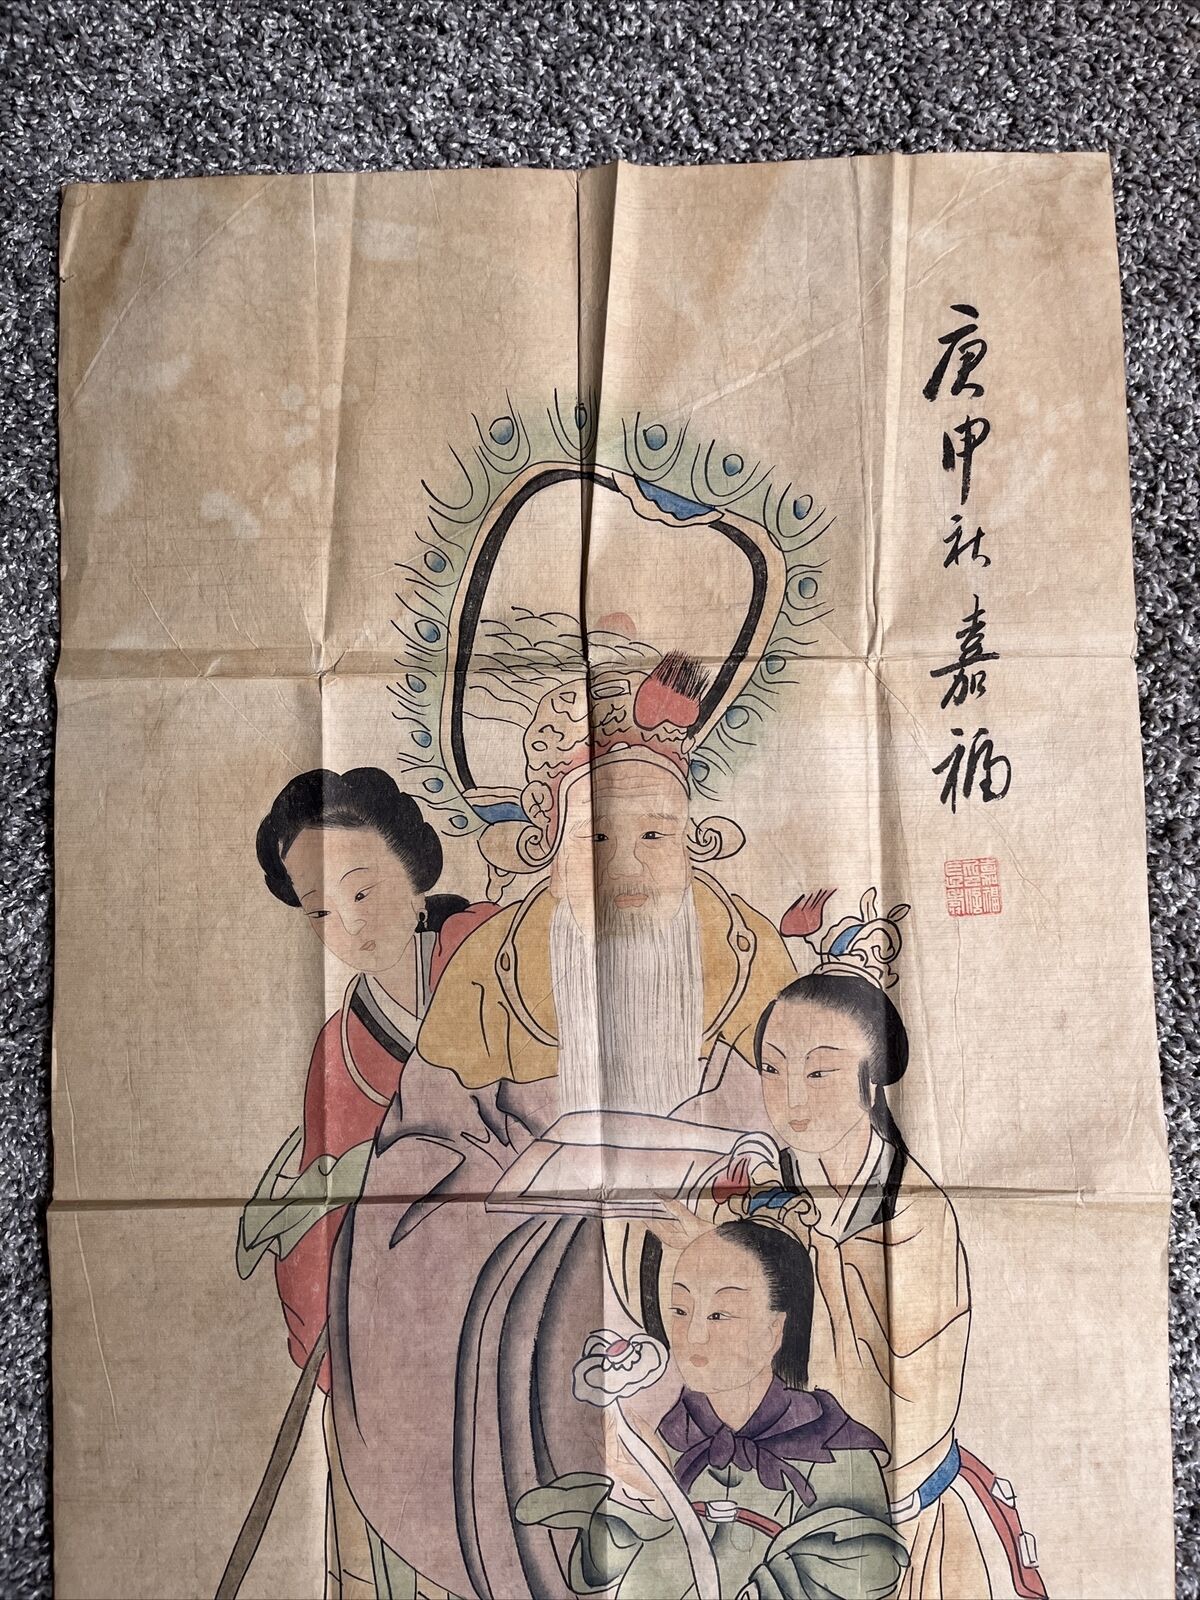 庚申秋嘉福